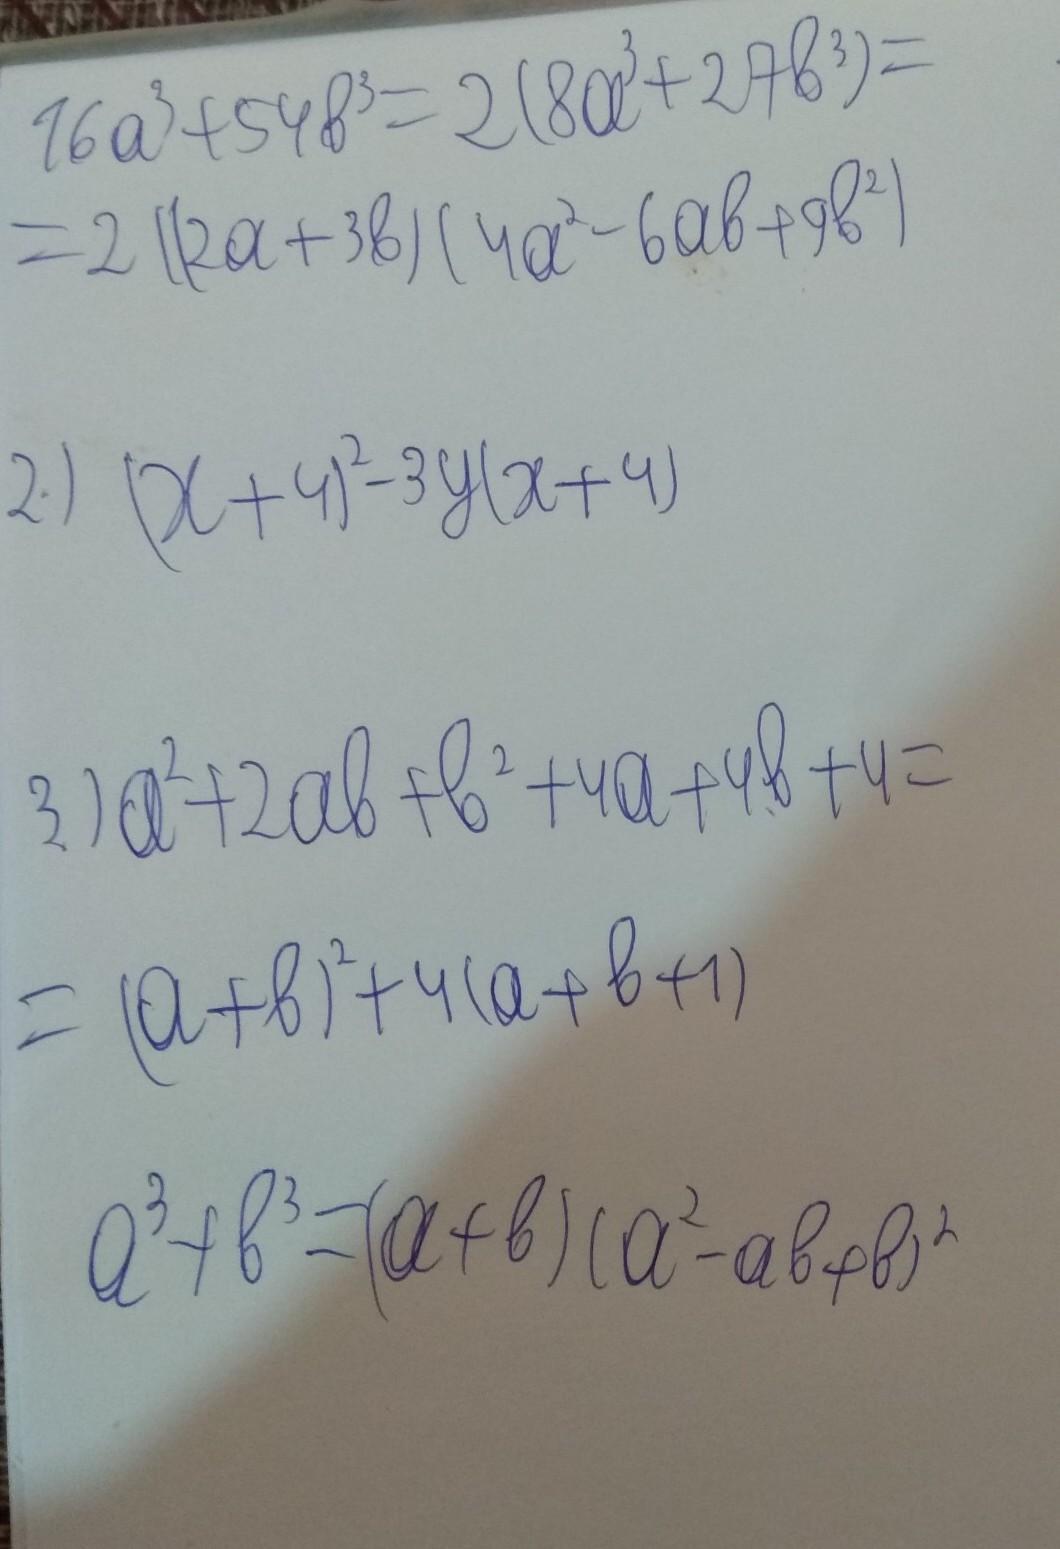 16a³+54b³=2(8a³+27b³)=
=2((2a+3b)(4a²-6ab+9b²)
2.) (x+4)²-3y(x+4)
3.) a²+2ab+b²+4a+4b+4=
=(a+b)²+4(a+b+1)
a³+b³=(a+b)(a²-ab+b)²